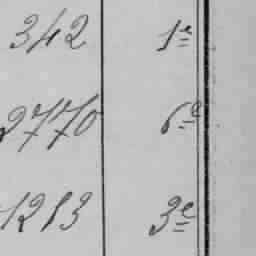 342 1e
2770 6e
1213 3e